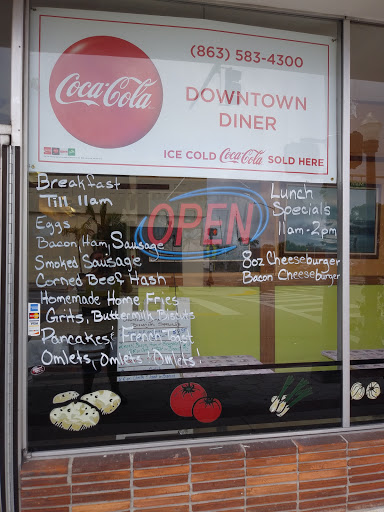 (863) 583-4300
Coca-Cola
DOWNTOWN
DINER
ICE COLD Coca-Cola SOLD HERE
Breakfast
Till 11am
Eggs
Bacon, Ham, Sausage
Smoked Sausage
Corned Beef Hash
Homemade Home Fries
Grits, Buttermilk Biscuits
Pancakes! French Toast
Omlets, Omlets! Omlets!
OPEN
Lunch
Specials
11am-2pm
8oz Cheeseburger
Bacon Cheeseburger